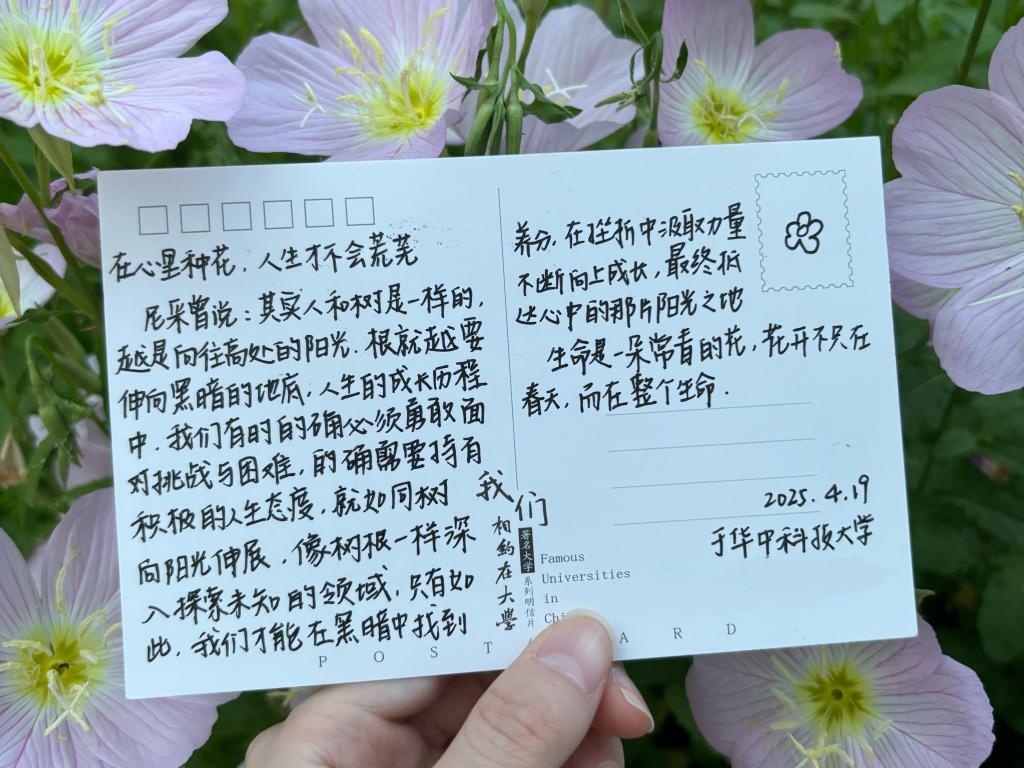 在心里种花，人生才不会荒芜
尼采曾说：其实人和树是一样的，
越是向往高处的阳光，根就越要
伸向黑暗的地底，人生的成长历程
中，我们有时的确必须勇敢面
对挑战与困难，的确需要持有
积极的人生态度，就如同树
向阳光伸展，像树根一样深
入探索未知的领域，只有如
此，我们才能在黑暗中找到
养分，在挫折中汲取力量
不断向上成长，最终抵
达心中的那片阳光之地
生命是一朵常看的花，花开不只在
春天，而在整个生命．
2025．4．19
于华中科技大学
我们
相約在大學
著名大学
系列明信片
Famous
Universities
in
POST ARD